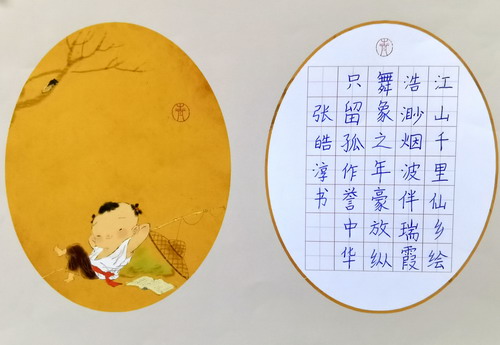 江山千里仙乡绘
浩渺烟波伴瑞霞
舞象之年豪放纵
只留孤作誉中华
张皓淳书